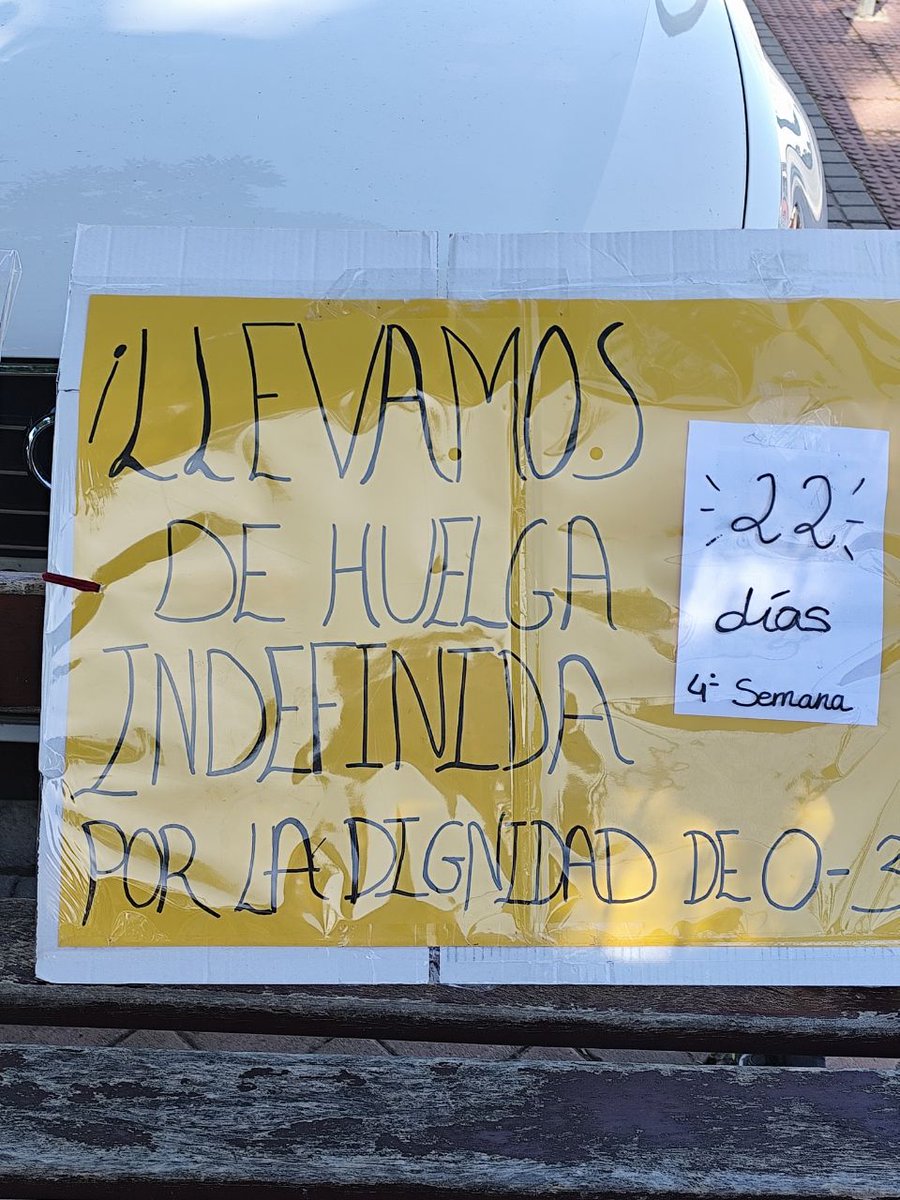 ¡LLEVAMOS
22
días
4ª Semana
DE HUELGA
INDEFINIDA
POR LA DIGNIDAD DE 0-3